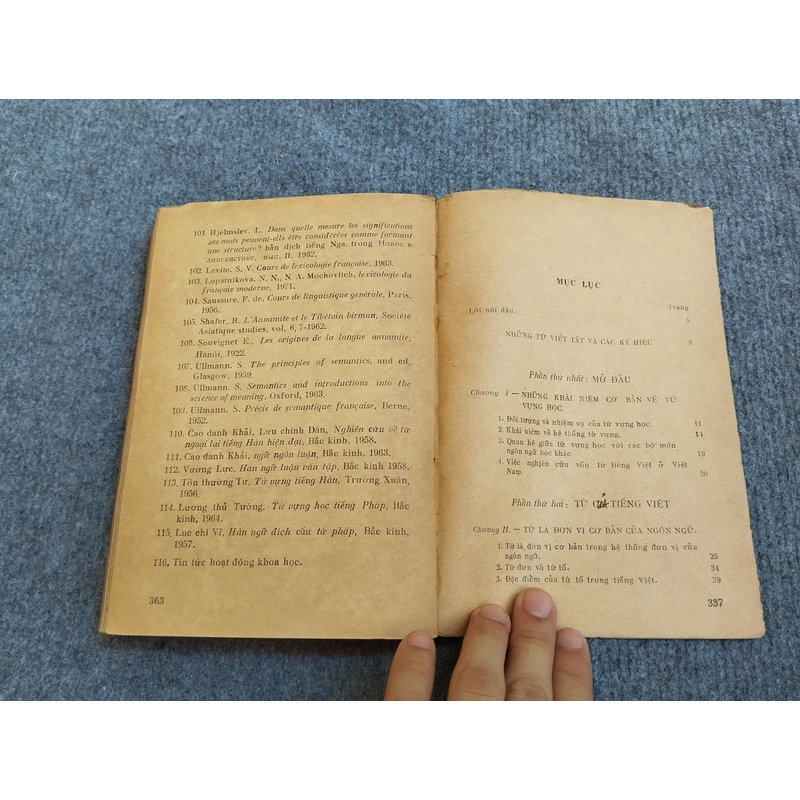 101. Hjelmslev. L. Dans quelle mesure les significations
des mots peuvent-ells être considérées comme formant
une structure? bản dịch tiếng Nga, trong Новое в
лингвистике, вып, II, 1962.
102. Levite. S. V. Cours de lexicologie française, 1963.
103. Lopatnikova. N. N., N A. Mochovitch, lexicologie du
français moderne, 1971.
104. Saussure, F. de. Cours de linguistique générale, Paris,
1956.
105. Shafer, R. L'Annamite et le Tibétain birman, Société
Asiatique studies, vol, 6, 7-1962.
106. Souvignet E., Les origines de la langue annamite,
Hànội, 1922.
107. Ullmann. S The principles of semantics, and ed,
Glasgow, 1959
108. Ullmann. S, Semantics and introductions into the
science of meaning. Oxford, 1963.
109. Ullmann. S. Précis de sémantique française, Berne,
1952.
110. Cao danh Khải, Lưu chính Dán, Nghiên cứu về từ
ngoại lai tiếng Hán hiện đại, Bắc kinh, 1958.
111. Cao danh Khải, ngữ ngôn luận, Bắc kinh, 1963.
112. Vương Lực, Hán ngữ luận văn tập, Bắc kinh 1958.
113. Tôn thường Tư, Từ vựng tiếng Hán, Trường Xuân,
1956.
114. Lương thủ Tường, Từ vựng học tiếng Pháp, Bắc
kinh, 1964.
115. Lục chí Vĩ, Hán ngữ địch cấu từ pháp, Bắc kinh,
1957.
116. Tin tức hoạt động khoa học.
363
MỤC LỤC
Trang
Lời nói đầu. 5
NHỮNG TỪ VIẾT TẮT VÀ CÁC KÝ HIỆU 8
Phần thứ nhất: MỞ ĐẦU
Chương I – NHỮNG KHÁI NIỆM CƠ BẢN VỀ TỪ
VỰNG HỌC.
1. Đối tượng và nhiệm vụ của từ vựng học. 11
2. Khái niệm về hệ thống từ vựng. 14
3. Quan hệ giữa từ vựng học với các bộ môn
ngôn ngữ học khác. 19
4. Việc nghiên cứu vốn từ tiếng Việt ở Việt
Nam. 20
Phần thứ hai: TỪ CỦA TIẾNG VIỆT
Chương II. – TỪ LÀ ĐƠN VỊ CƠ BẢN CỦA NGÔN NGỮ.
1. Từ là đơn vị cơ bản trong hệ thống đơn vị của
ngôn ngữ. 25
2. Từ đơn và từ tố. 34
3. Đặc điểm của từ tố trong tiếng Việt. 39
337